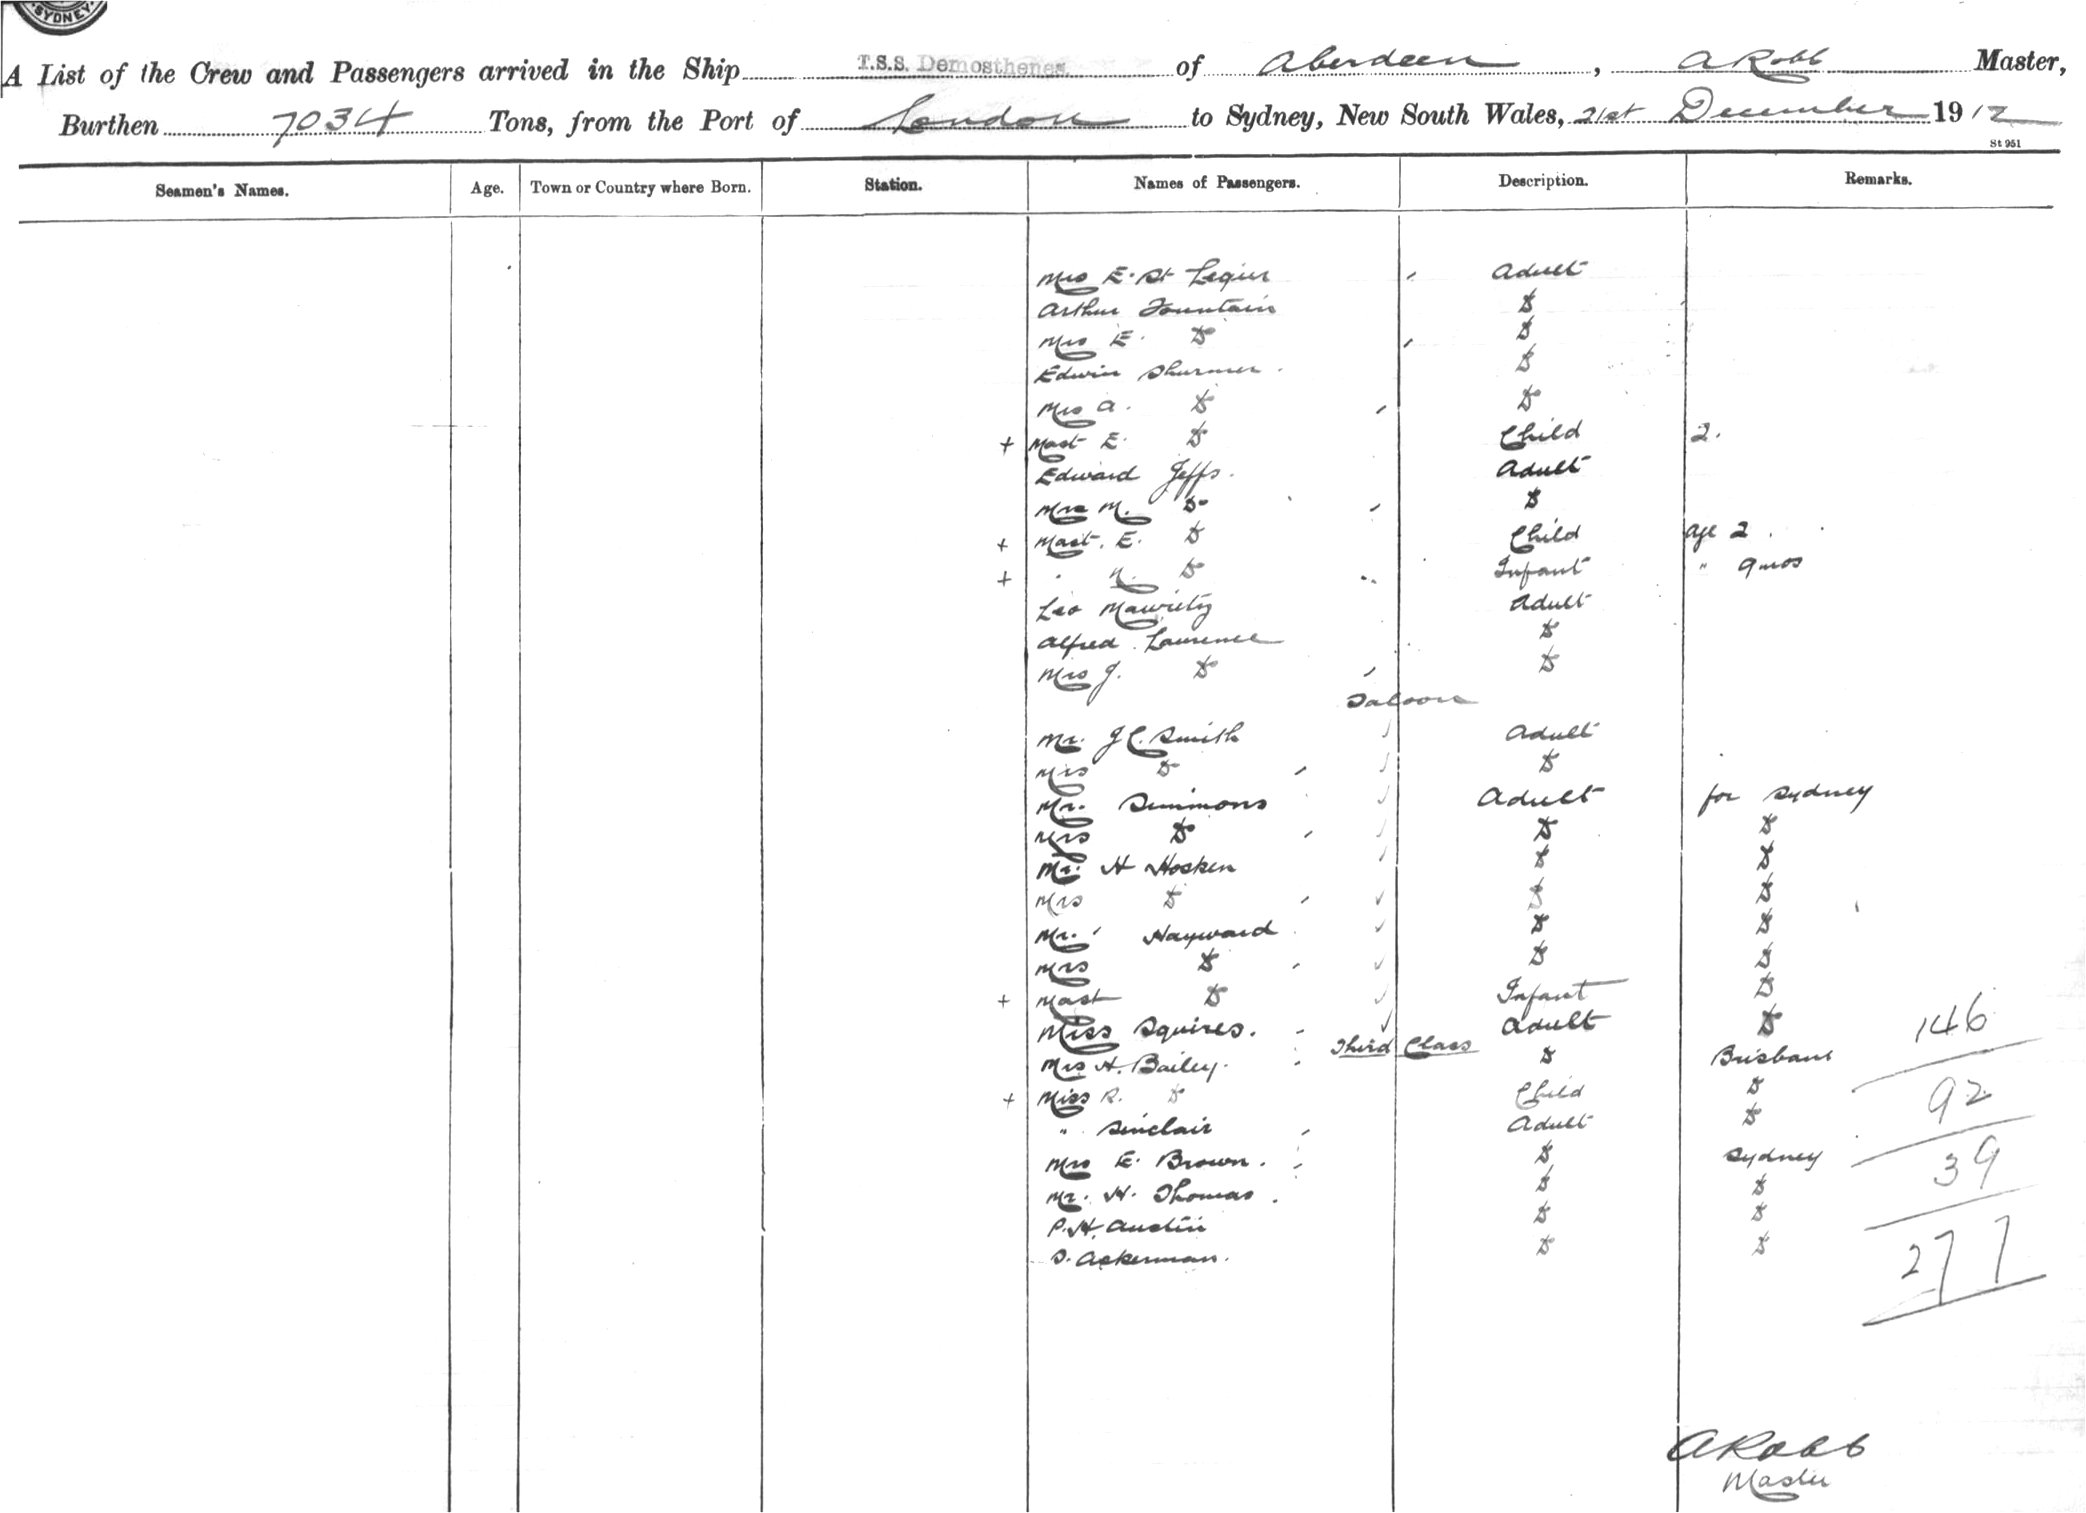 SYDNEY.
A List of the Crew and Passengers arrived in the Ship T.S.S. Demosthenes of Aberdeen, A Robb Master,
Burthen 7034 Tons, from the Port of London to Sydney, New South Wales, 21st December 1912
St 951
Seamen's Names. Age. Town or Country where Born. Station. Names of Passengers. Description. Remarks.
Mrs E. St Legier Adult
Arthur Fountain Do
Mrs E. Do Do
Edwin Shurmer. Do
Mrs A. Do Do
+ Mast E. Do Child 2.
Edward Jeffs. Adult
Mrs M. Do Do
+ Mast. E. Do Child Age 2.
+ " N. Do Infant " 9 mos
Leo Adult
Alfred Laurence Do
Mrs J. Do Do
Saloon
Mr. J C. Smith Adult
Mrs Do Do
Mr. Simmons Adult for Sydney
Mrs Do Do Do
Mr. H Hosken Do Do
Mrs Do Do Do
Mr. Hayward Do Do
Mrs Do Do Do
+ Mast Do Infant Do
Miss Squires. Adult Do 146
Third Class
Mrs H. Bailey. Do Brisbane
+ Miss R. Do Child Do 92
" Sinclair Adult Do
Mrs E. Brown. Do Sydney 39
Mr. H. Thomas. Do Do
P. H. Austin Do Do
S. Ackerman. Do Do 277
A Robb
Master